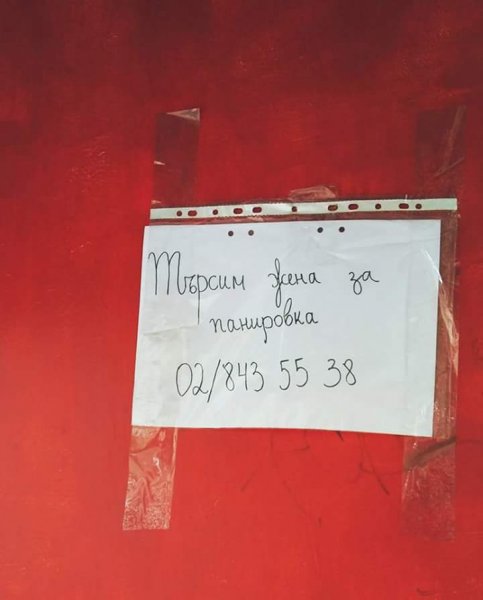 Търсим жена за
панировка
02/843 55 38